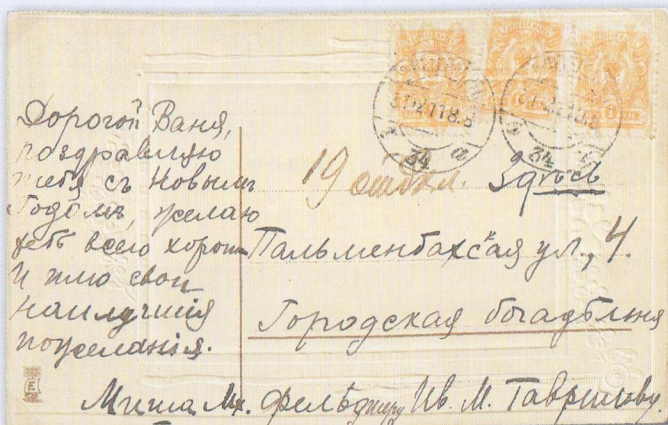 Дорогой Ваня,
поздравляю
тебя съ Новымъ
Годомъ, желаю
тебѣ всего хорош
и шлю свои
наилучшія
пожеланія.
Миша
19 отдѣл. Здѣсь
Пальменбахская ул., 4.
Городская богадѣльня
фельдшеру Ив. М. Гаврилову
34
34